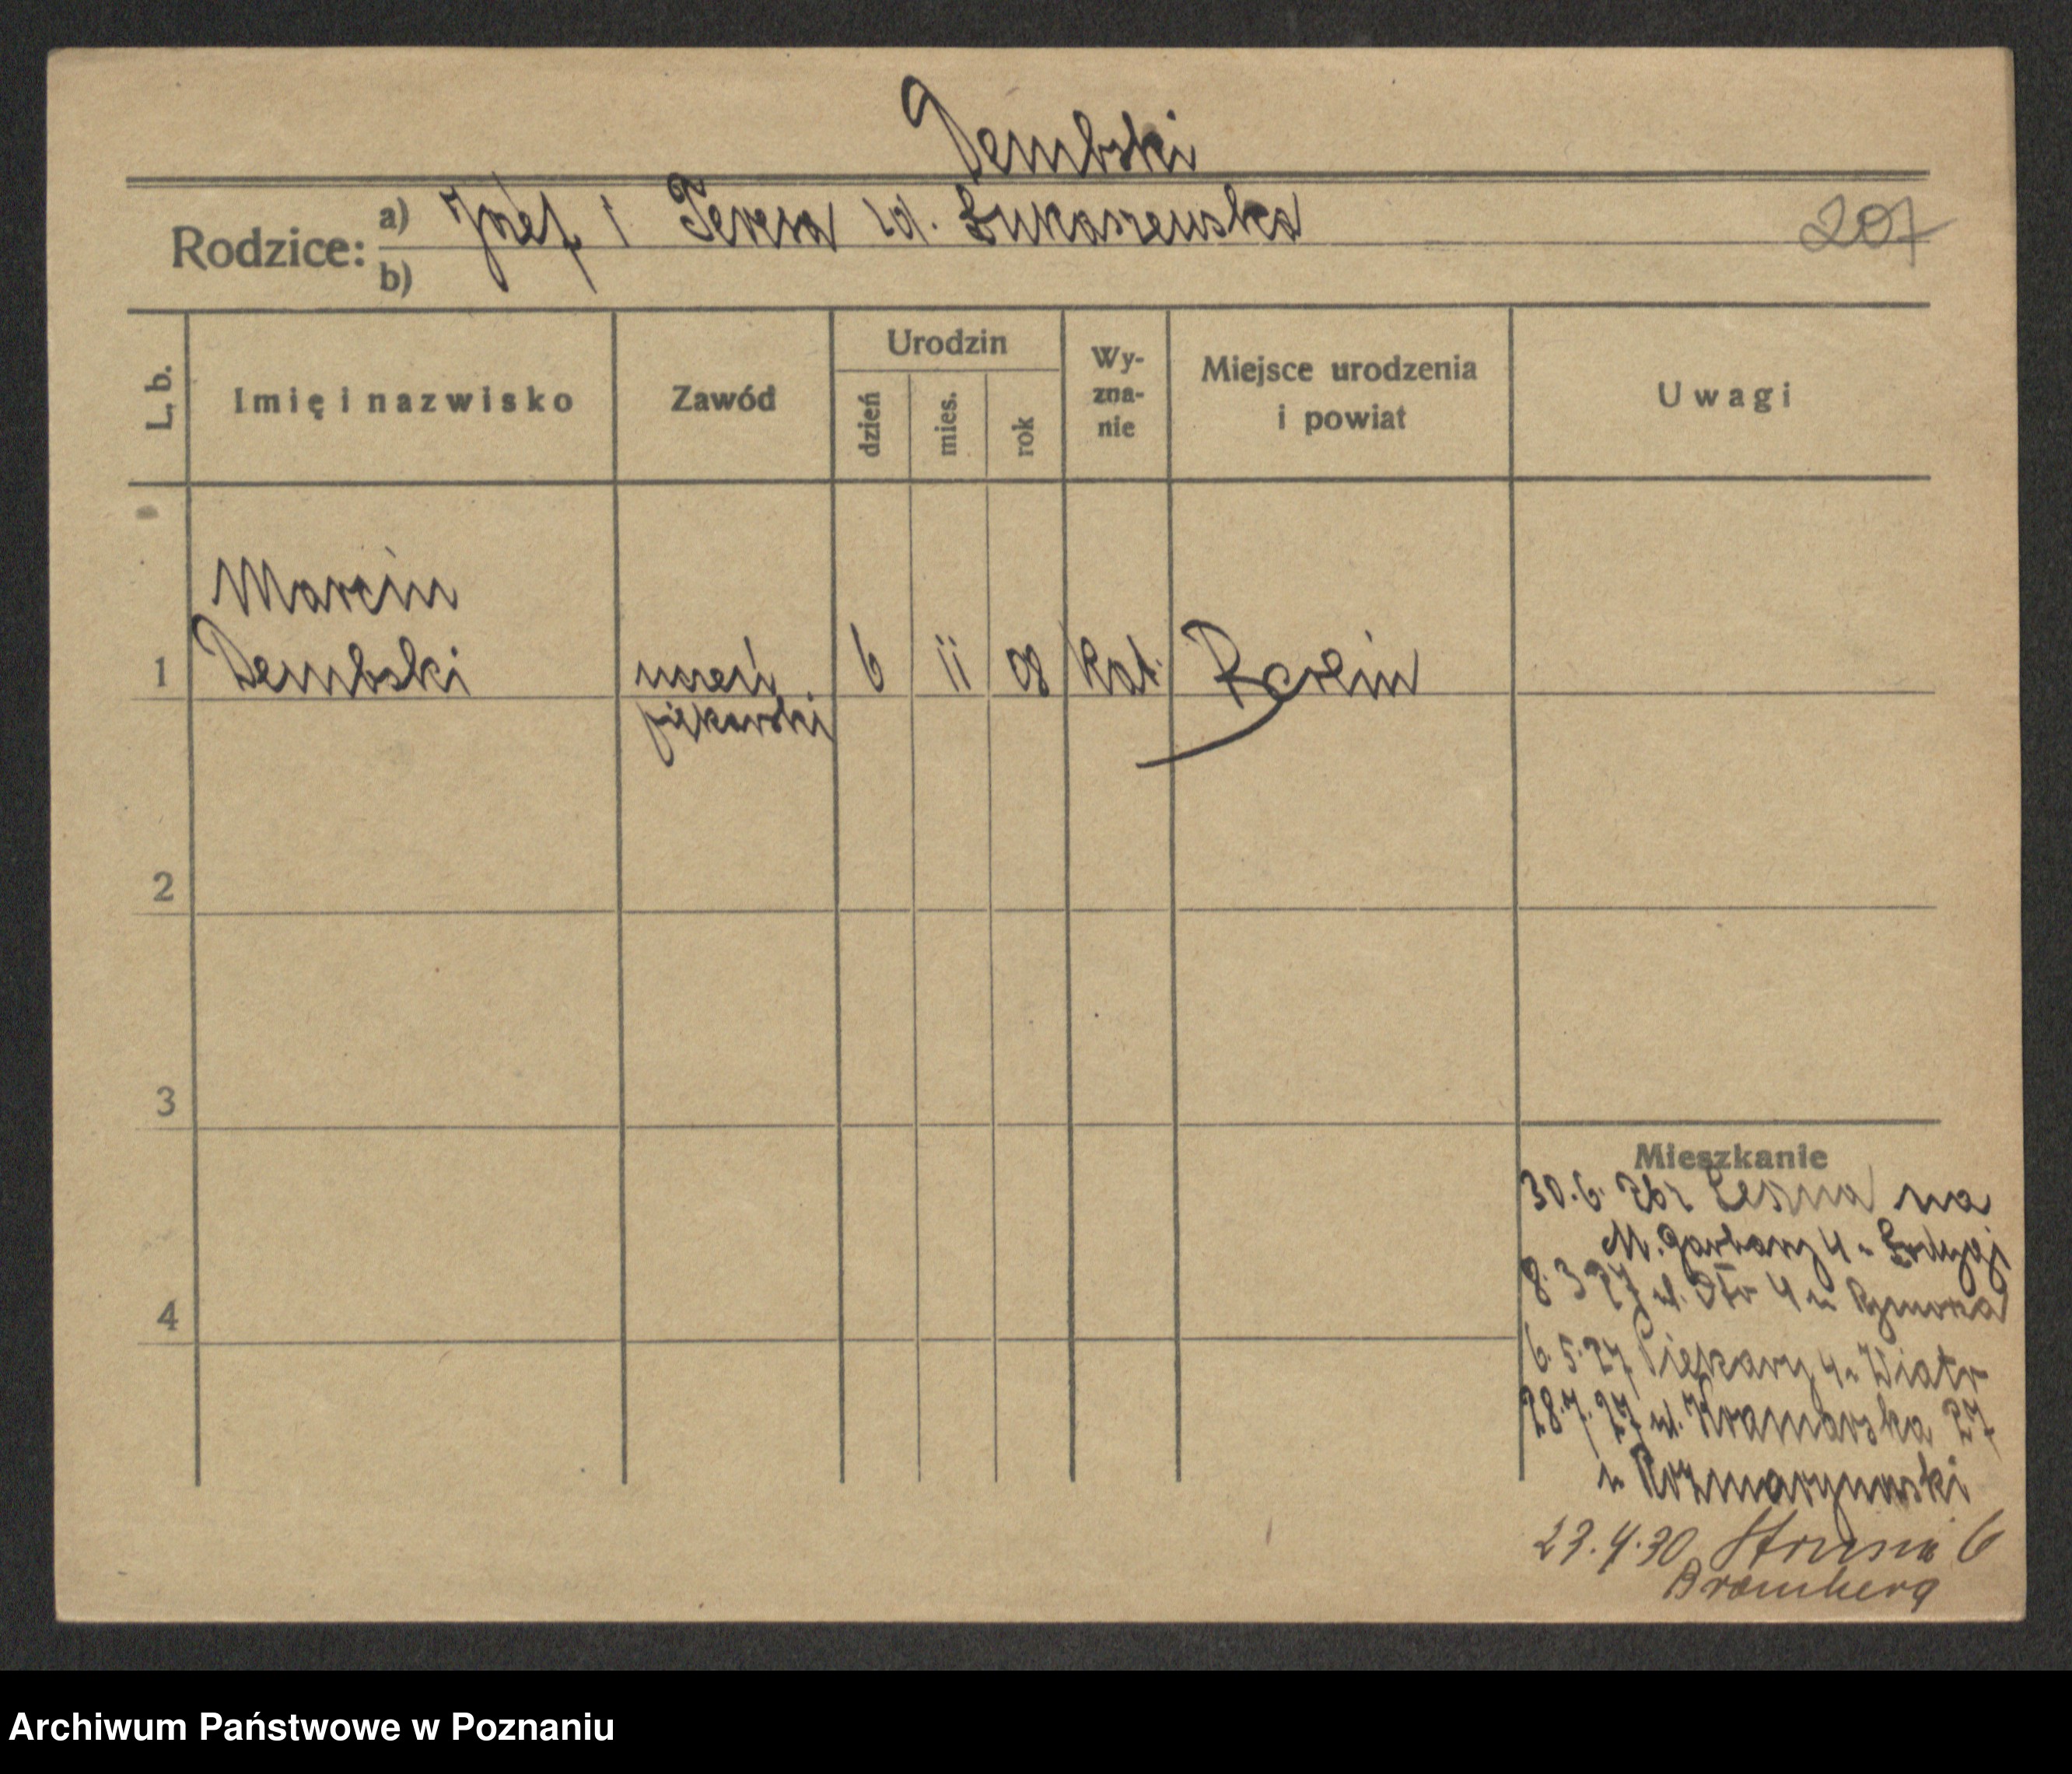 Dembski
Rodzice: a) Józef i Teresa zd. Łukaszewska 207
b)
L. b. Imię i nazwisko Zawód Urodzin dzień mies. rok Wy-zna-nie Miejsce urodzenia i powiat Uwagi
Marcin
1 Dembski uczeń 6 11 08 kat. Berlin
piekarski
2
3
Mieszkanie
30.6. 26 z Leszna na
M. Garbary 4 u
8.3 27 ul. 4 u
4
6.5.27 Piekary 4 u Wiatr
28.7.27 ul. Kramarska 27
u Rozmarynowski
23.4.30 Strusia 6
Bromberg
Archiwum Państwowe w Poznaniu